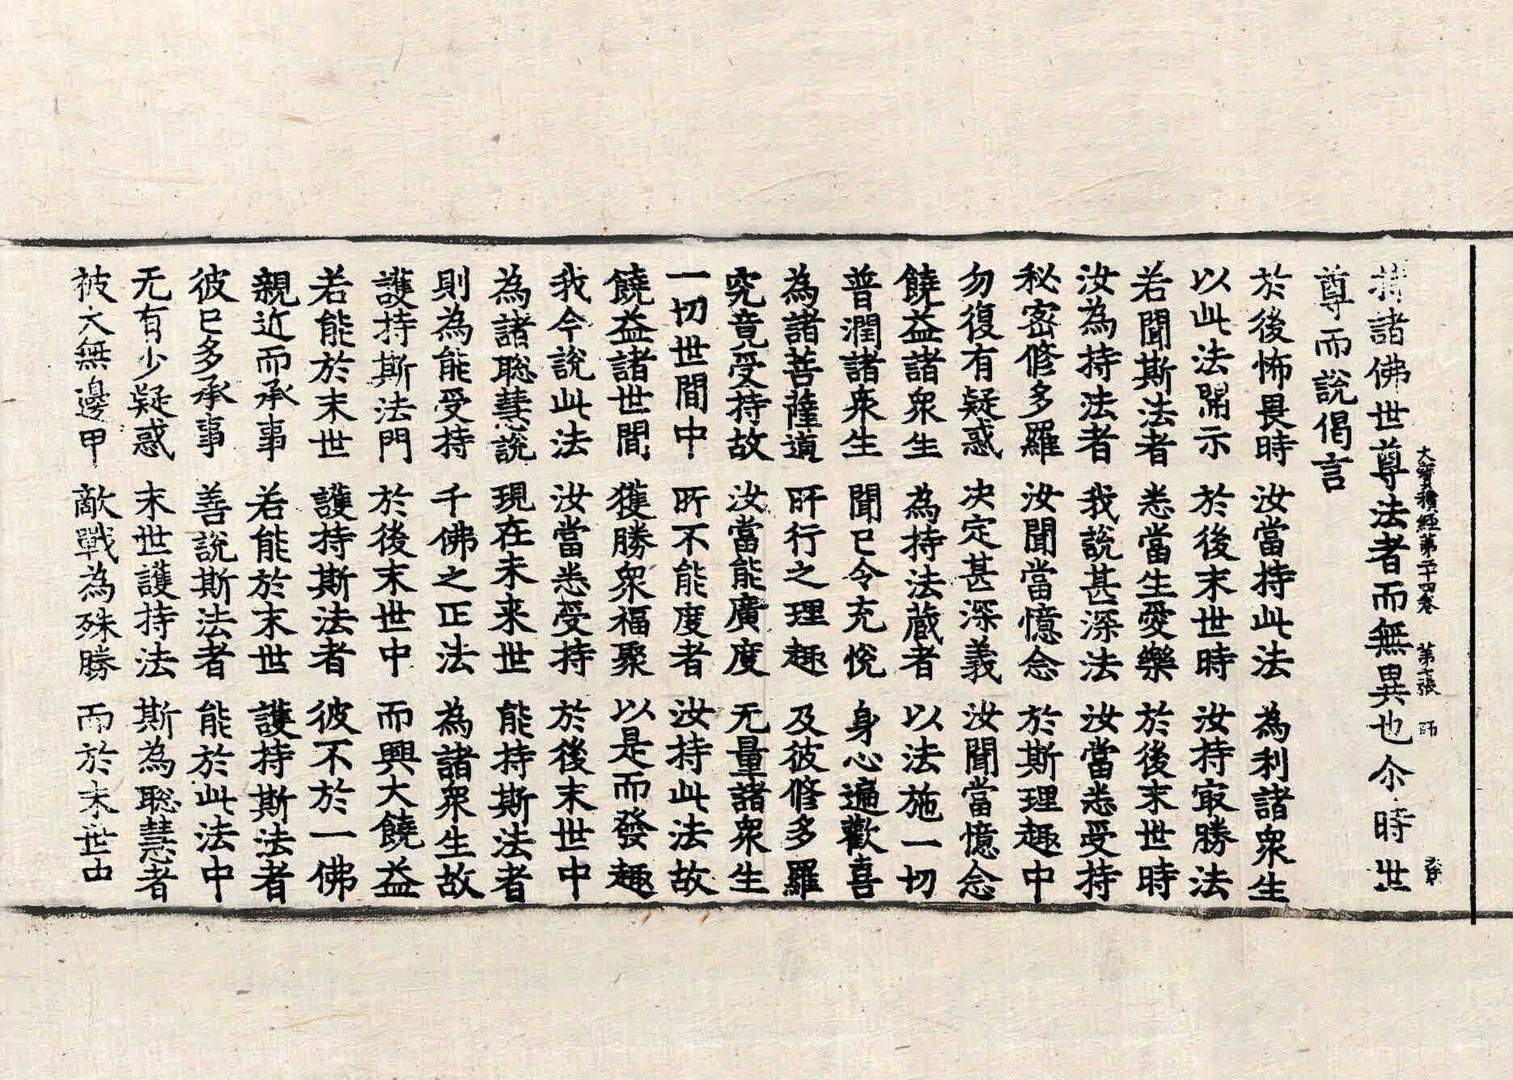 大寶積經第二十四卷 第七張 師
持諸佛世尊法者而無異也尒時世
尊而說偈言
於後怖畏時 汝當持此法 為利諸衆生
以此法開示 於後末世時 汝持㝡勝法
若聞斯法者 悉當生愛樂 於後末世時
汝為持法者 我說甚深法 汝當悉受持
秘密修多羅 汝聞當憶念 於斯理趣中
勿復有疑惑 决定甚深義 汝聞當憶念
饒益諸衆生 為持法藏者 以法施一切
普潤諸衆生 聞已令充悅 身心遍歡喜
為諸菩薩道 所行之理趣 及彼修多羅
究竟受持故 汝當能廣度 无量諸衆生
一切世間中 所不能度者 汝持此法故
饒益諸世間 獲勝衆福聚 以是而發趣
我今說此法 汝當悉受持 於後末世中
為諸聡慧說 現在未来世 能持斯法者
則為能受持 千佛之正法 為諸衆生故
護持斯法門 於後末世中 而興大饒益
若能於末世 護持斯法者 彼不於一佛
親近而承事 若能於末世 護持斯法者
彼已多承事 善說斯法者 能於此法中
无有少疑惑 末世護持法 斯為聡慧者
被大無邊甲 敵戰為殊勝 而於末世中